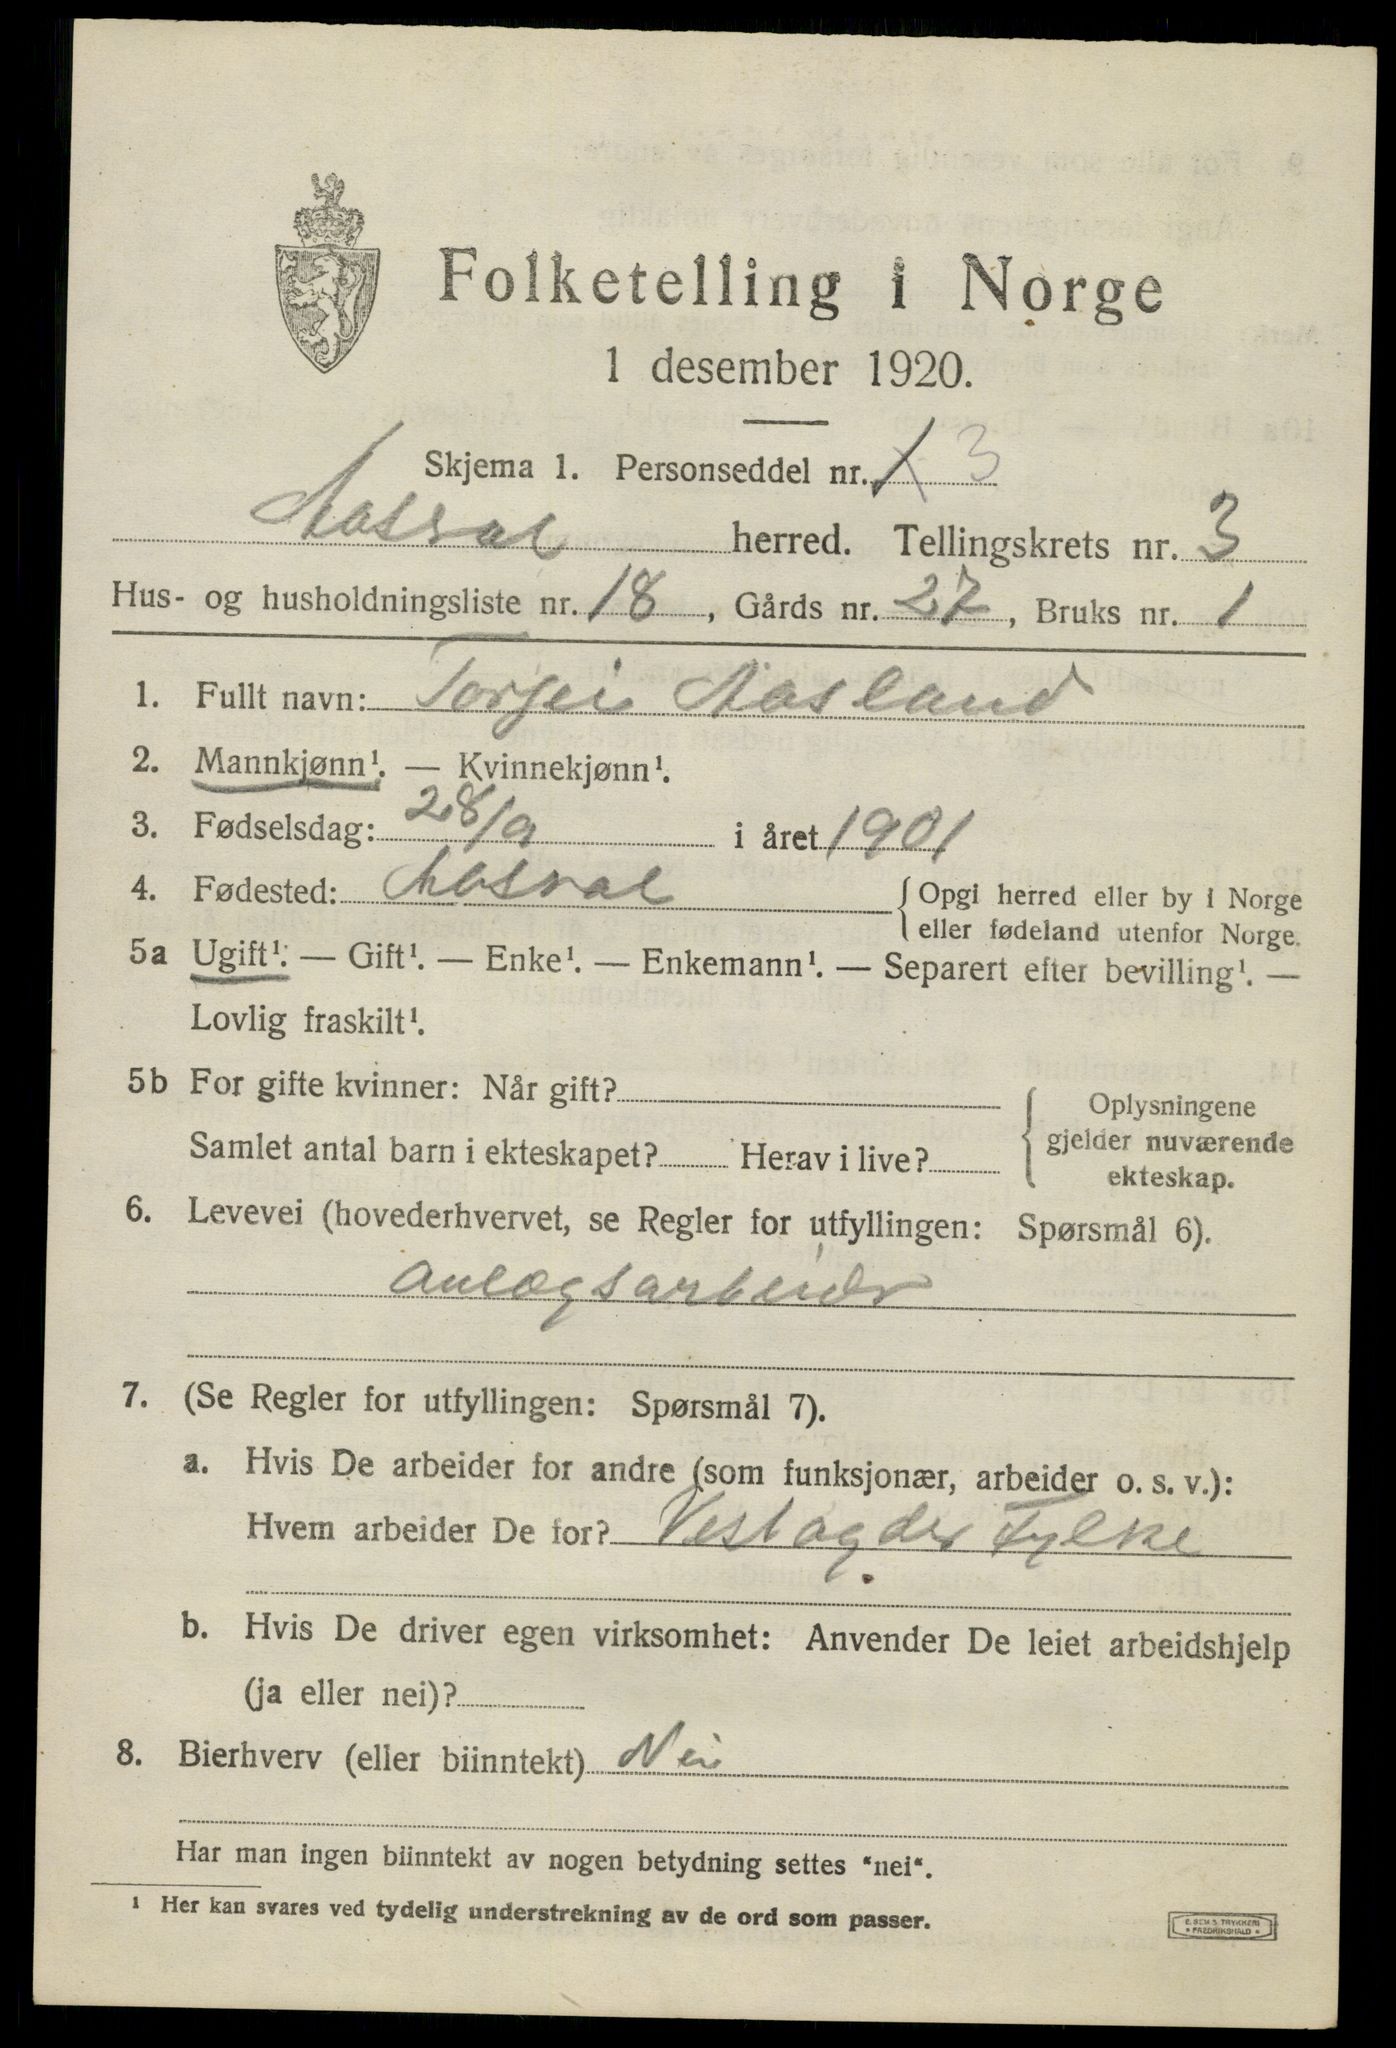 Folketelling i Norge
1 desember 1920.
Skjema 1. Personseddel nr. 3
Aaseral herred. Tellingskrets nr. 3
Hus- og husholdningsliste nr. 18, Gårds nr. 27, Bruks nr. 1
1. Fullt navn: Torgeir Aasland
2. Mannkjønn¹. — Kvinnekjønn¹.
3. Fødselsdag: 28/9 i året 1901
4. Fødested: Aaseral { Opgi herred eller by i Norge
eller fødeland utenfor Norge.
5a Ugift¹. — Gift¹. — Enke¹. — Enkemann¹. — Separert efter bevilling¹. —
Lovlig fraskilt¹.
5b For gifte kvinner: Når gift?
Samlet antal barn i ekteskapet? Herav i live?
{ Oplysningene
gjelder nuværende
ekteskap.
6. Levevei (hovederhvervet, se Regler for utfyllingen: Spørsmål 6).
Anlægsarbeider
7. (Se Regler for utfyllingen: Spørsmål 7).
a. Hvis De arbeider for andre (som funksjonær, arbeider o. s. v.):
Hvem arbeider De for? Vestagder Fylke
b. Hvis De driver egen virksomhet: Anvender De leiet arbeidshjelp
(ja eller nei)?
8. Bierhverv (eller biinntekt) Nei
Har man ingen biinntekt av nogen betydning settes “nei“.
¹ Her kan svares ved tydelig understrekning av de ord som passer.
E. SEM'S TRYKKERI
• FREDRIKSHALD •